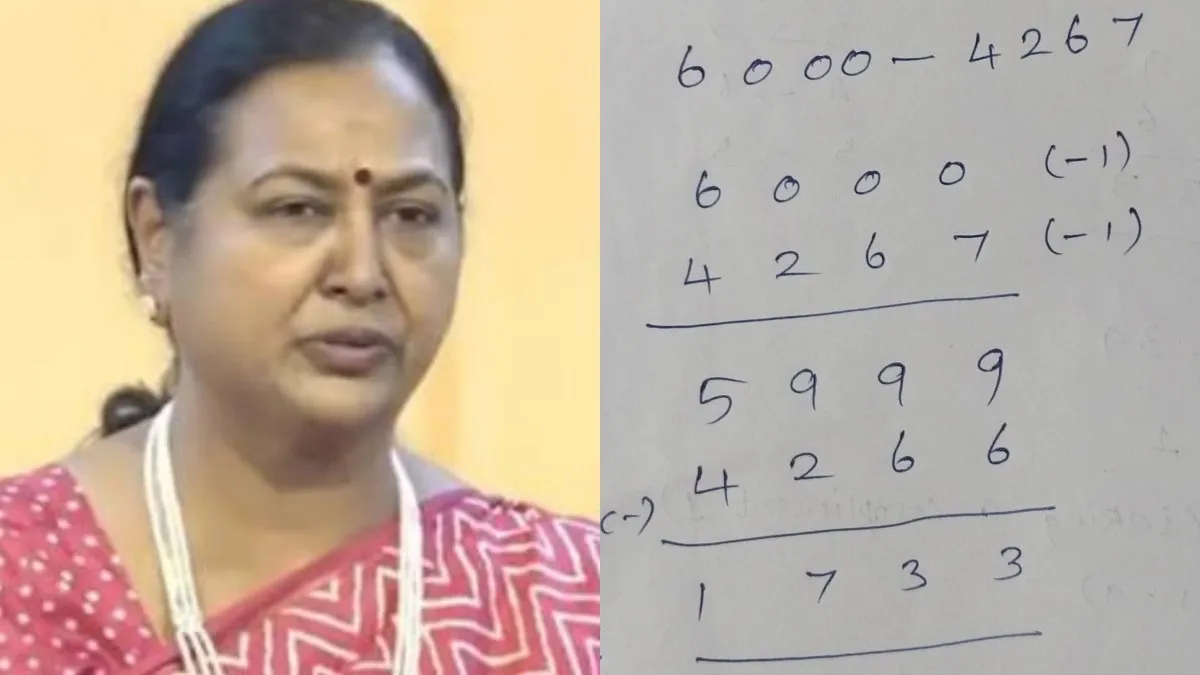 6 0 0 0 – 4 2 6 7
6 0 0 0 (-1)
4 2 6 7 (-1)
5 9 9 9
(-) 4 2 6 6
1 7 3 3